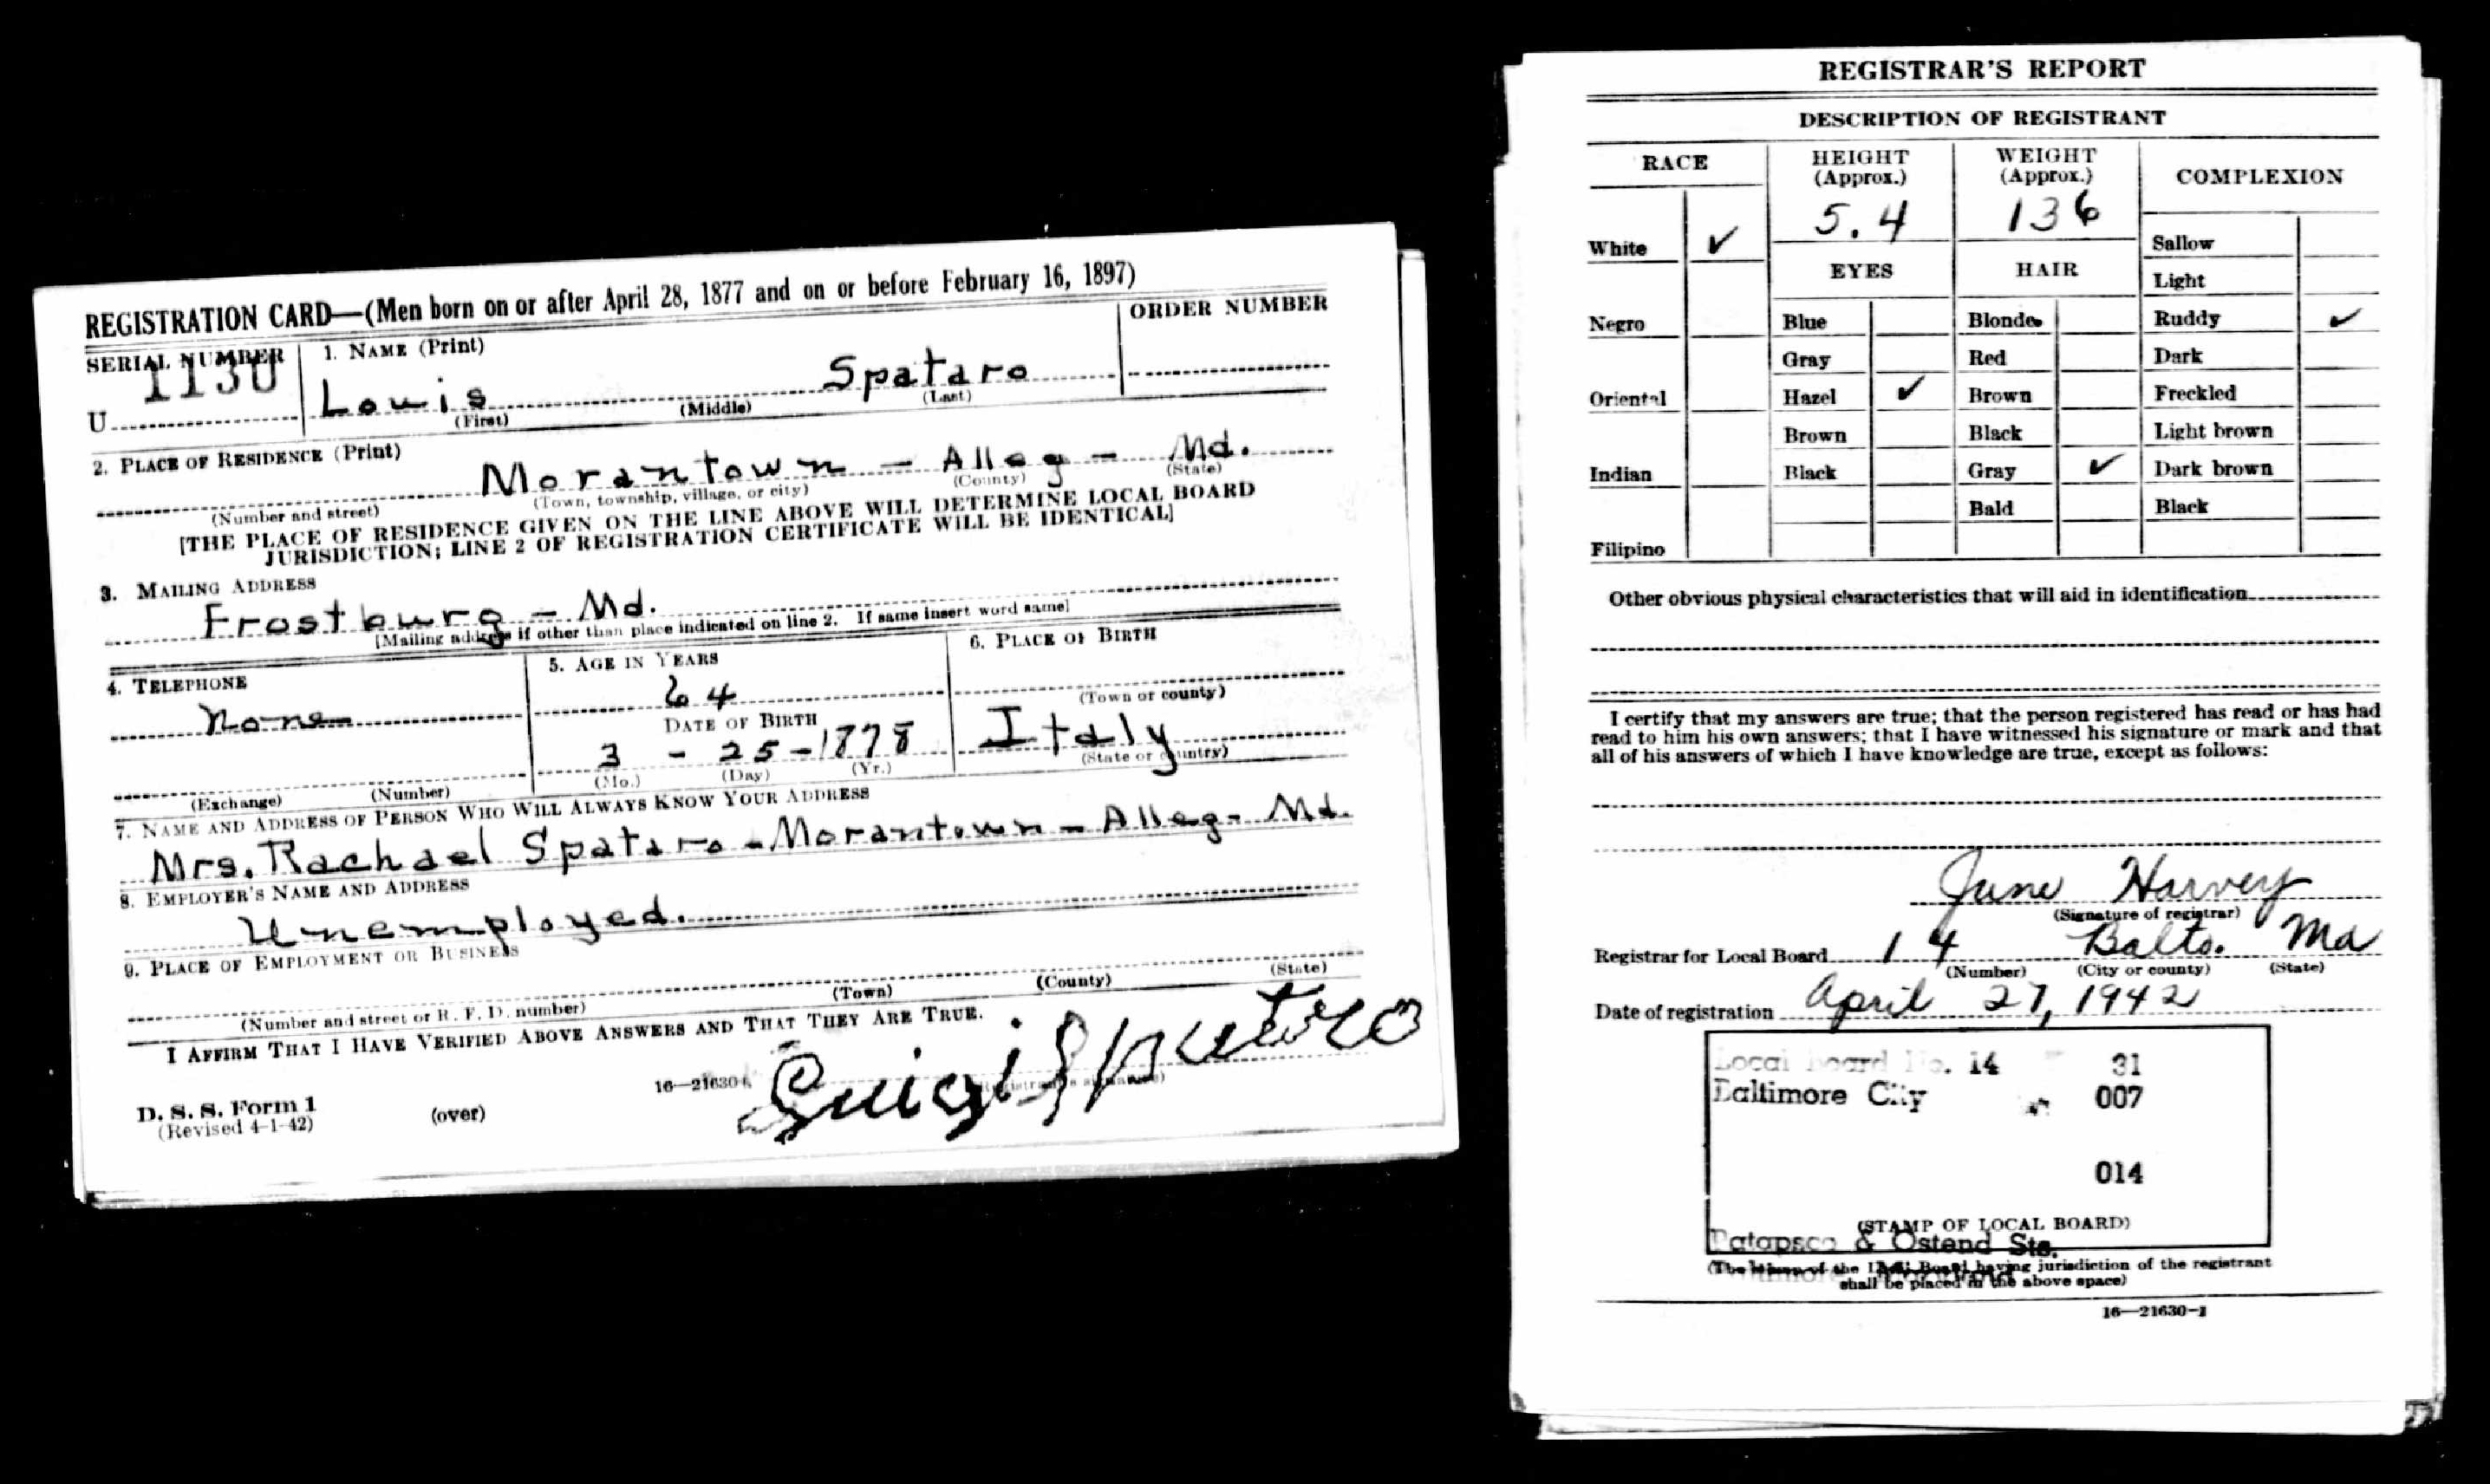 REGISTRATION CARD—(Men born on or after April 28, 1877 and on or before February 16, 1897)
SERIAL NUMBER
1. NAME (Print)
ORDER NUMBER
U 1130
Louis Spataro
(First) (Middle) (Last)
2. PLACE OF RESIDENCE (Print)
Morantown - Alleg - Md.
(Number and street) (Town, township, village, or city) (County) (State)
[THE PLACE OF RESIDENCE GIVEN ON THE LINE ABOVE WILL DETERMINE LOCAL BOARD
JURISDICTION; LINE 2 OF REGISTRATION CERTIFICATE WILL BE IDENTICAL]
3. MAILING ADDRESS
Frostburg - Md.
[Mailing address if other than place indicated on line 2. If same insert word same]
4. TELEPHONE
None
(Exchange) (Number)
5. AGE IN YEARS
64
DATE OF BIRTH
3 - 25 - 1878
(Mo.) (Day) (Yr.)
6. PLACE OF BIRTH
(Town or county)
Italy
(State or country)
7. NAME AND ADDRESS OF PERSON WHO WILL ALWAYS KNOW YOUR ADDRESS
Mrs. Rachael Spataro - Morantown - Alleg - Md.
8. EMPLOYER'S NAME AND ADDRESS
Unemployed.
9. PLACE OF EMPLOYMENT OR BUSINESS
(Number and street or R. F. D. number) (Town) (County) (State)
I AFFIRM THAT I HAVE VERIFIED ABOVE ANSWERS AND THAT THEY ARE TRUE.
Luigi Spataro
D. S. S. Form 1
(Revised 4-1-42)
(over)
16—21630
(Registrant's signature)
REGISTRAR'S REPORT
DESCRIPTION OF REGISTRANT
RACE
HEIGHT
(Approx.)
WEIGHT
(Approx.)
COMPLEXION
5.4
136
White ✓
Negro
Oriental
Indian
Filipino
EYES
Blue
Gray
Hazel ✓
Brown
Black
HAIR
Blonde
Red
Brown
Black
Gray ✓
Bald
Sallow
Light
Ruddy ✓
Dark
Freckled
Light brown
Dark brown
Black
Other obvious physical characteristics that will aid in identification
I certify that my answers are true; that the person registered has read or has had
read to him his own answers; that I have witnessed his signature or mark and that
all of his answers of which I have knowledge are true, except as follows:
June Harvey
(Signature of registrar)
Registrar for Local Board 14 Balto. Md
(Number) (City or county) (State)
Date of registration April 27, 1942
Local Board No. 14 31
Baltimore City 007
014
(STAMP OF LOCAL BOARD)
Patapsco & Ostend Sts.
(The stamp of the Local Board having jurisdiction of the registrant
shall be placed in the above space)
16—21630-1